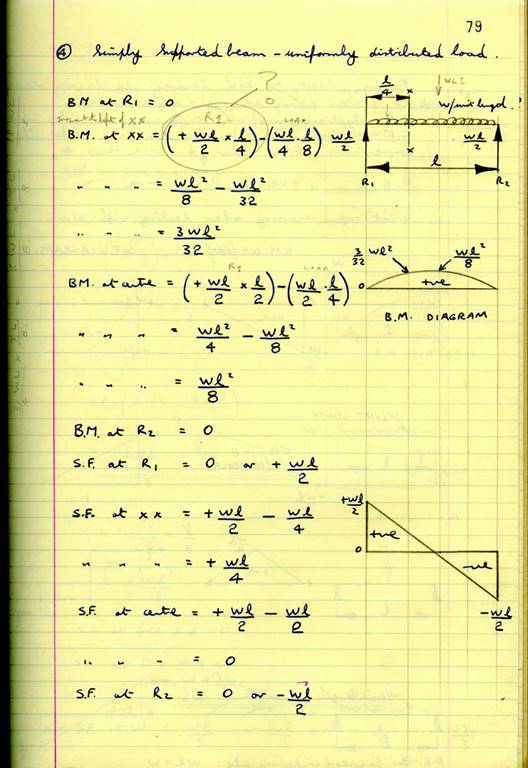 79
④ Simply supported beam - uniformly distributed load.
BM at R₁ = 0
R1 LOAD
B.M. at xx = (+ wl/2 × l/4) - (wl/4 · l/8)
" " " = wl²/8 - wl²/32
" " " = 3wl²/32
R1 LOAD
BM. at centre = (+ wl/2 × l/2) - (wl/2 · l/4)
" " " = wl²/4 - wl²/8
" " " = wl²/8
B.M. at R₂ = 0
S.F. at R₁ = 0 or + wl/2
S.F. at xx = + wl/2 - wl/4
" " " = + wl/4
S.F. at centre = + wl/2 - wl/2
" " " = 0
S.F. at R₂ = 0 or - wl/2
?
0
l/4
x
w/unit length
wl/2
wl/2
x
l
R₁
R₂
3/32 wl²
wl²/8
0
+ve
B.M. DIAGRAM
+wl/2
+ve
0
-ve
-wl/2